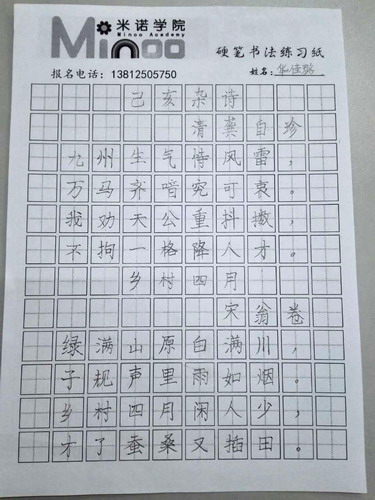 米诺学院
Minoo Academy
Minoo
硬笔书法练习纸
报名电话：13812505750
姓名：
己亥杂诗
清龚自珍
九州生气恃风雷，
万马齐喑究可哀。
我劝天公重抖擞，
不拘一格降人才。
乡村四月
宋翁卷
绿满山原白满川，
子规声里雨如烟。
乡村四月闲人少，
才了蚕桑又插田。